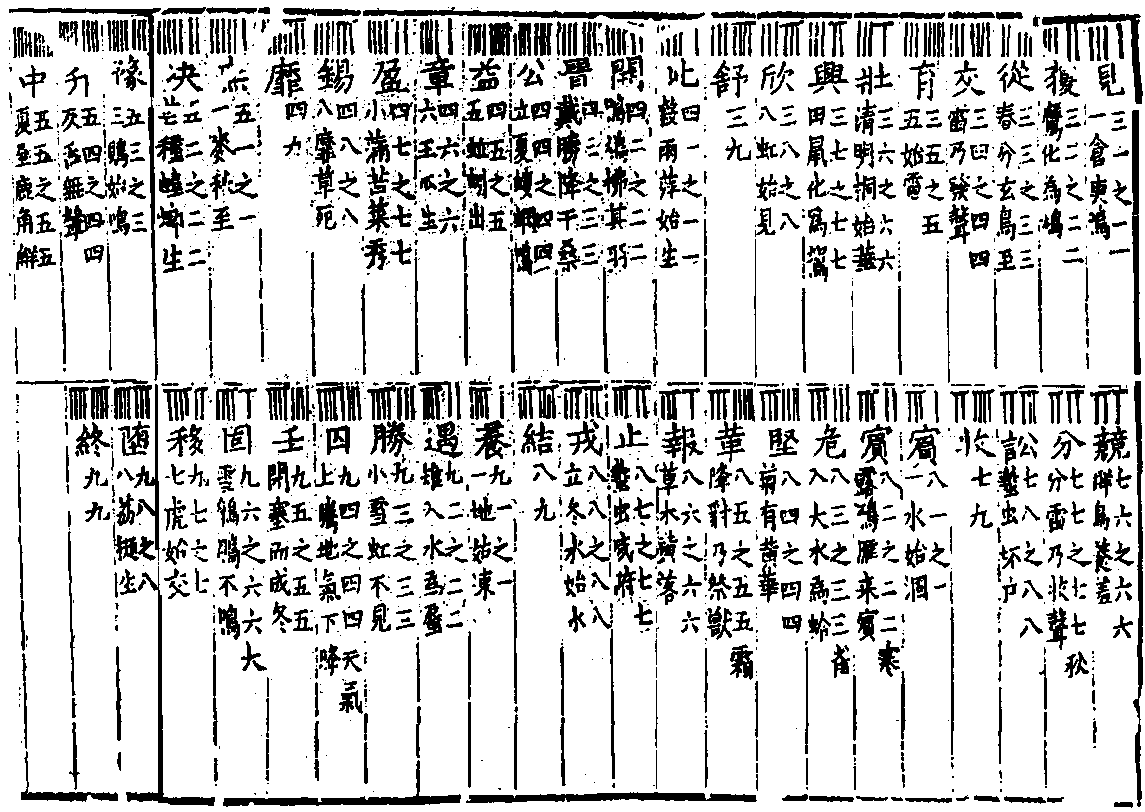 見
三一之一
一倉庚鳴
獲
三二之二二
鷹化為鳩
從
三三之三三
春分玄鳥至
交
三四之四四
雷乃發聲
育
三五之五
五始電
壯
三六之六六
清明桐始華
興
三七之七七
田鼠化為鴽
欣
三八之八
八虹始見
舒
三九
比
四一之一一
穀雨萍始生
開
四二之二二
鳴鳩拂其羽
晉
四三之三三
戴勝降于桑
公
四四之四四
立夏螻蟈鳴
益
四五之五
五蚯蚓出
章
四六之六
六王瓜生
盈
四七之七七
小滿苦菜秀
錫
四八之八
八靡草死
靡
四九
庶
五一之一
一麥秋至
決
五二之二二
芒種螳螂生
豫
五三之三
三鵙始鳴
升
五四之四四
反舌無聲
中
五五之五五
夏至鹿角解
競
七六之六六
群鳥養羞
分
七七之七七秋
分雷乃收聲
訟
七八之八八
蟄虫坏户
收
七九
八一之一
一水始涸
賓
八二之二二寒
露鴻雁來賓
危
八三之三三雀
入大水為蛤
堅
八四之四四
菊有黃華
革
八五之五五霜
降豺乃祭獸
報
八六之六六
草木黃落
止
八七之七七
蟄虫咸俯
戎
八八之八八
立冬水始氷
結
八九
養
九一之一
一地始凍
遇
九二之二二
雉入水為蜃
勝
九三之三三
小雪虹不見
囚
九四之四四天氣
上騰地氣下降
壬
九五之五五
閉塞而成冬
固
九六之六六大
雪鶡鴠不鳴
移
九七之七
七虎始交
墮
九八之八
八荔挺生
終
九九